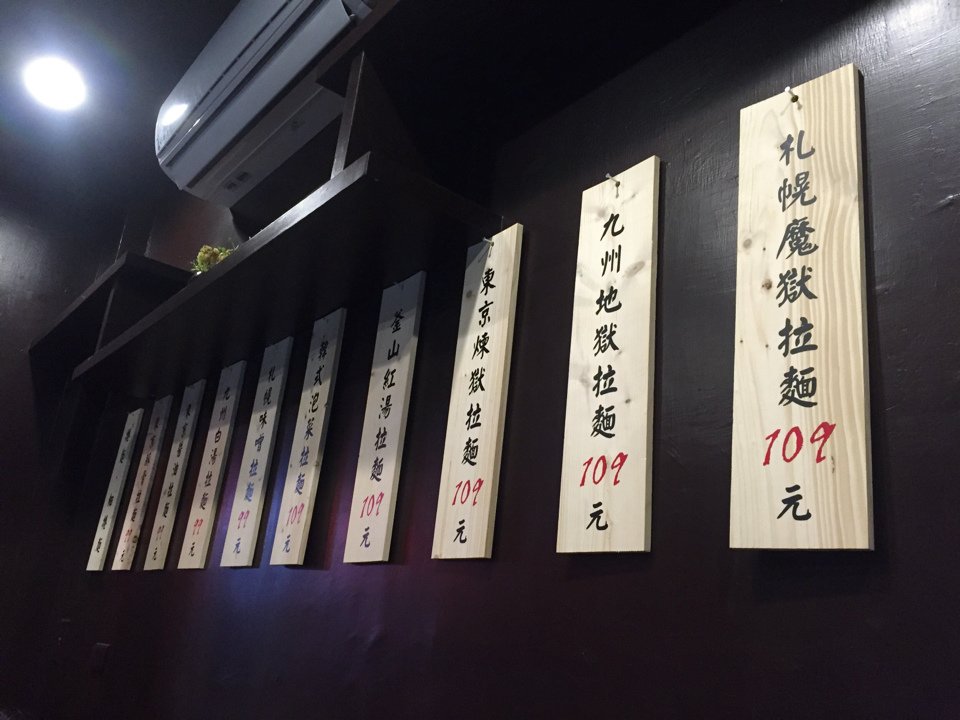 札幌魔獄拉麵109元
九州地獄拉麵109元
東京煉獄拉麵109元
釜山紅湯拉麵109元
韓式泡菜拉麵109元
札幌味噌拉麵99元
九州白湯拉麵99元
東京醬油拉麵99元
拉麵99元